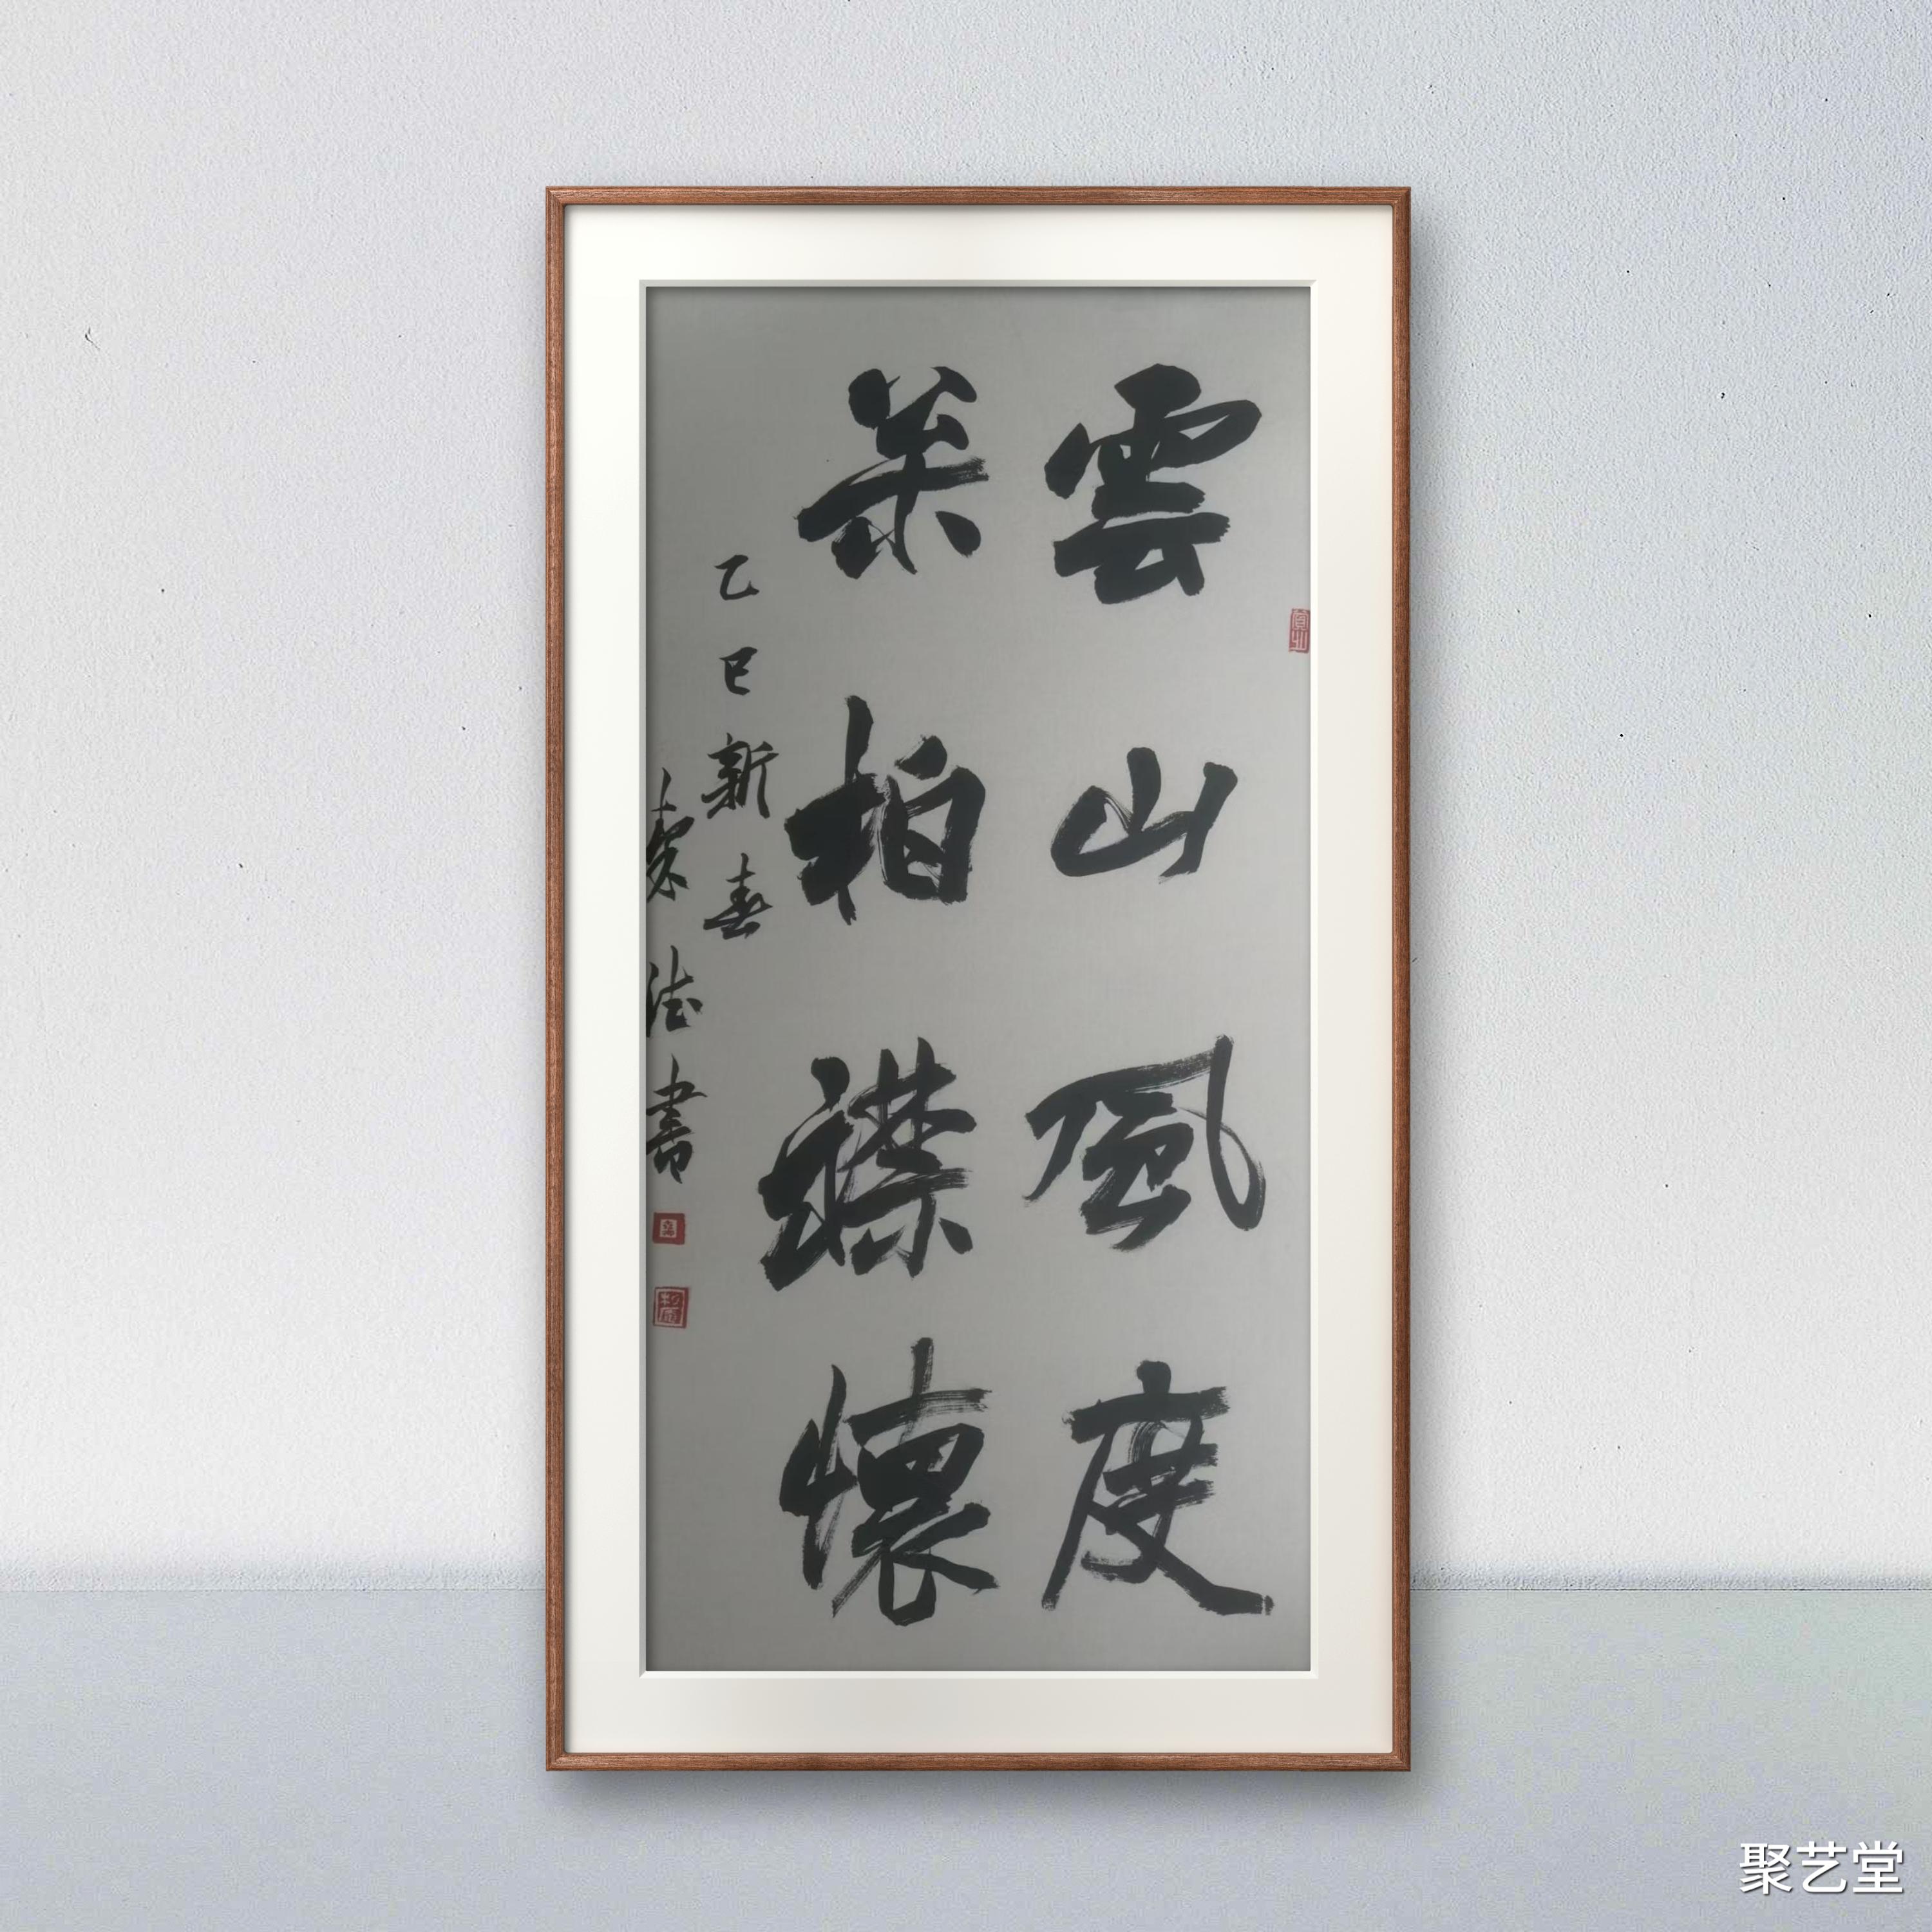 雲山風度
枩柏襟懷
乙巳新春
書
聚艺堂